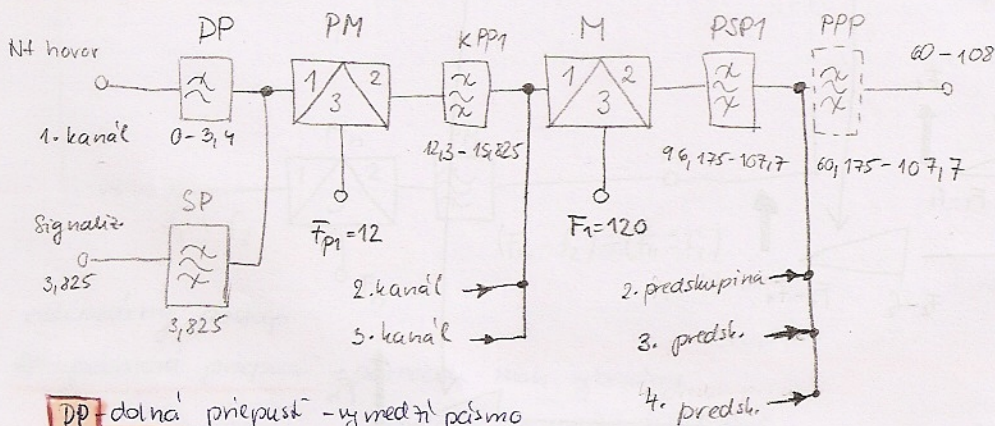 DP PM KPP1 M PSP1 PPP
Nf hovor
60-108
1 2
3
1 2
3
1. kanál
0-3,4
12,3-15,825
96,175-107,7
60,175-107,7
Signaliz.
3,825
SP
3,825
Fp1=12
F1=120
2. kanál
3. kanál
2. predskupina
3. predsk.
4. predsk.
DP - dolná priepusť - vymedzí pásmo